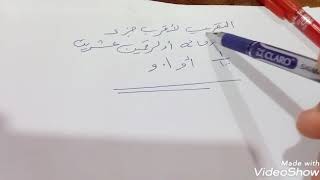 التقريب لأقرب جزء
من مائة أو لرقمين عشريين
أو ٠٫٠١
CLARO
Made with
VideoShow